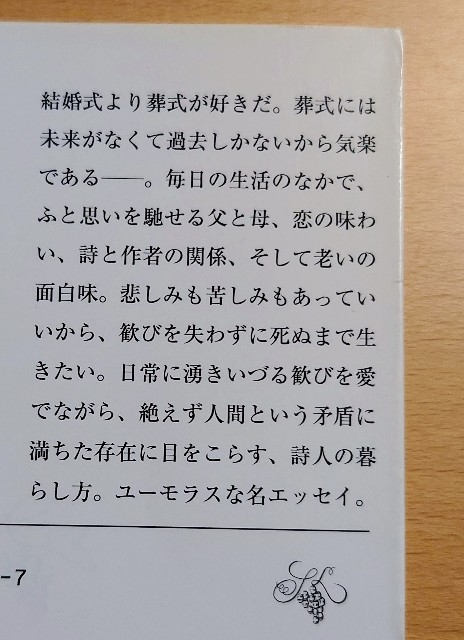 結婚式より葬式が好きだ。葬式には
未来がなくて過去しかないから気楽
である――。毎日の生活のなかで、
ふと思いを馳せる父と母、恋の味わ
い、詩と作者の関係、そして老いの
面白味。悲しみも苦しみもあってい
いから、歓びを失わずに死ぬまで生
きたい。日常に湧きいづる歓びを愛
でながら、絶えず人間という矛盾に
満ちた存在に目をこらす、詩人の暮
らし方。ユーモラスな名エッセイ。
-7